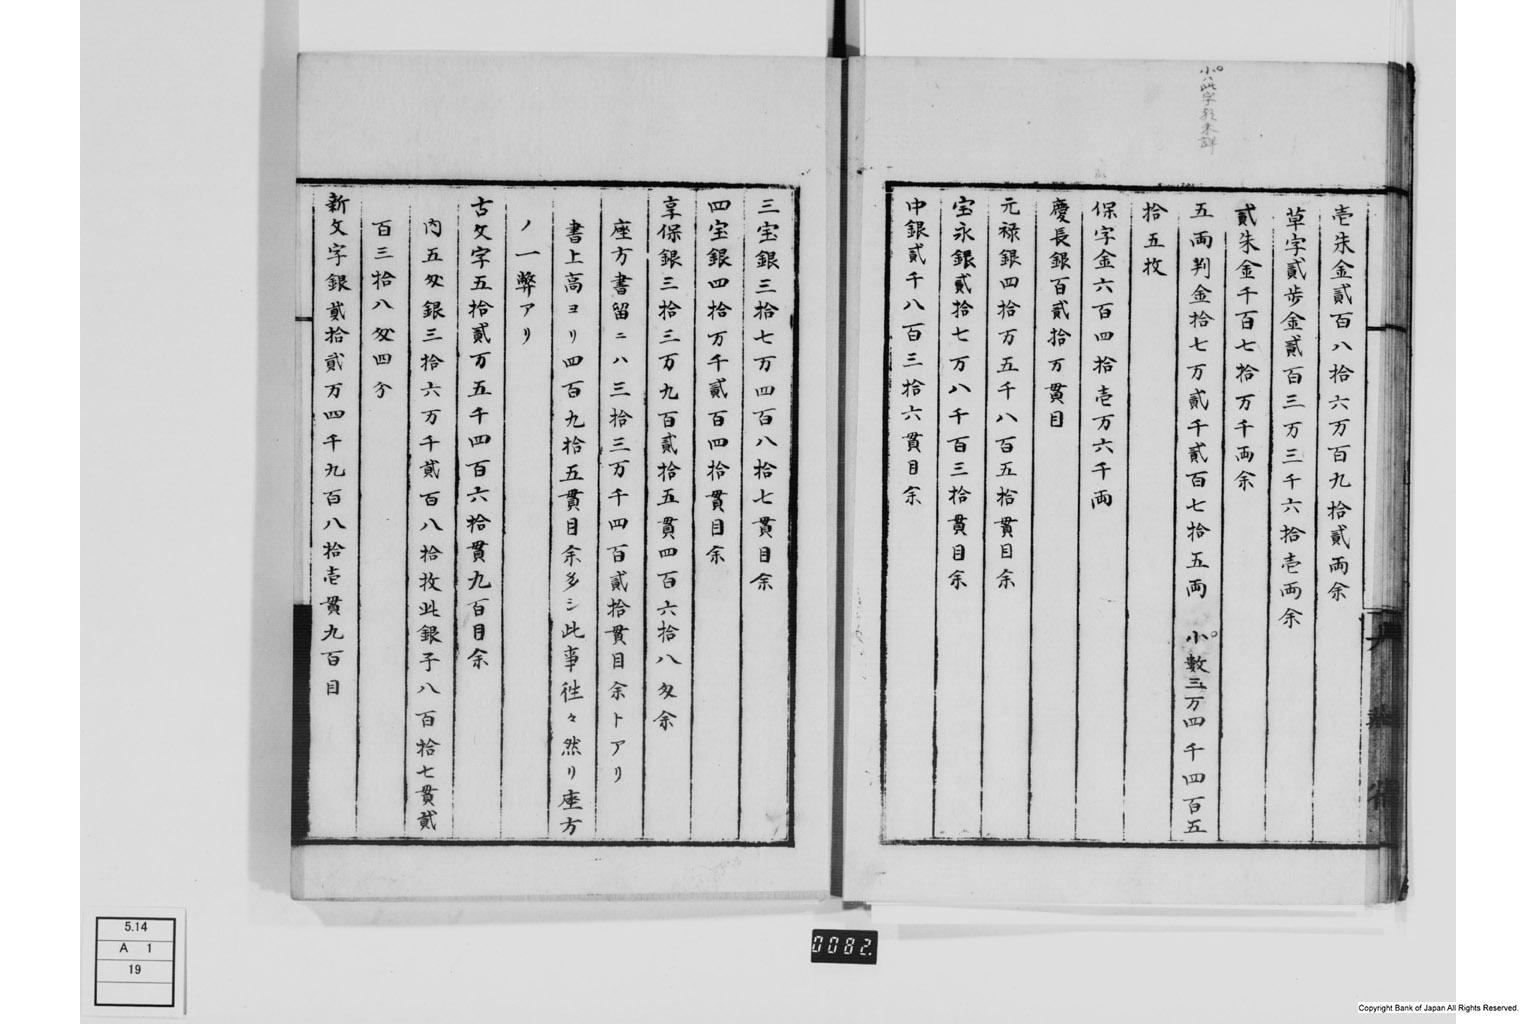 小ハ此字形未詳
壱朱金貳百八拾六万百九拾貳両余
草字貳歩金貳百三万三千六拾壱両余
貳朱金千百七拾万千両余
五両判金拾七万貳千貳百七拾五両 小数三万四千四百五
拾五枚
保字金六百四拾壱万六千両
慶長銀百貳拾万貫目
元禄銀四拾万五千八百五拾貫目余
宝永銀貳拾七万八千百三拾貫目余
中銀貳千八百三拾六貫目余
三宝銀三拾七万四百八拾七貫目余
四宝銀四拾万千貳百四拾貫目余
享保銀三拾三万九百貳拾五貫四百六拾八匁余
座方書留ニハ三拾三万千四百貳拾貫目余トアリ
書上高ヨリ四百九拾五貫目余多シ此事徃々然リ座方
ノ一弊アリ
古文字五拾貳万五千四百六拾貫九百目余
内五匁銀三拾六万千貳百八拾枚此銀子八百拾七貫貳
百三拾八匁四分
新文字銀貳拾貳万四千九百八拾壱貫九百目
5.14
A 1
19
0082.
Copyright Bank of Japan All Rights Reserved.